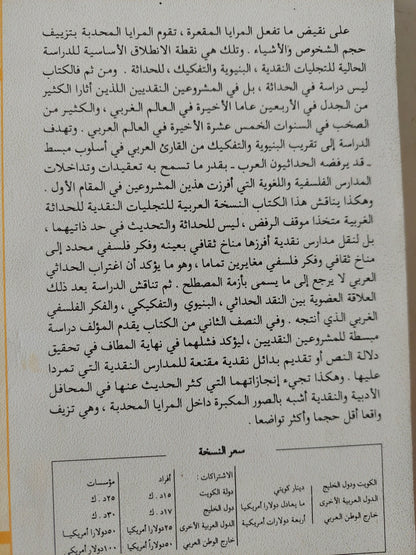 على نقيض ما تفعل المرايا المقعرة ، تقوم المرايا المحدبة بتزييف
حجم الشخوص والأشياء . وتلك هي نقطة الانطلاق الأساسية للدراسة
الحالية للتجليات النقدية ، البنيوية والتفكيك ، للحداثة . ومن ثم فالكتاب
ليس دراسة في الحداثة ، بل في المشروعين النقديين اللذين أثارا الكثير
من الجدل في الأربعين عاما الأخيرة في العالم الغربي ، والكثير من
الصخب في السنوات الخمس عشرة الأخيرة في العالم العربي . وتهدف
الدراسة إلى تقريب البنيوية والتفكيك من القارئ العربي في أسلوب مبسط
ـ قد يرفضه الحداثيون العرب ـ بقدر ما تسمح به تعقيدات وتداخلات
المدارس الفلسفية واللغوية التي أفرزت هذين المشروعين في المقام الأول .
وهكذا يناقش هذا الكتاب النسخة العربية للتجليات النقدية للحداثة
الغربية متخذا موقف الرفض ، ليس للحداثة والتحديث في حد ذاتيهما ،
بل لنقل مدارس نقدية أفرزها مناخ ثقافي بعينه وفكر فلسفي محدد إلى
مناخ ثقافي وفكر فلسفي مغايرين تماما ، وهو ما يؤكد أن اغتراب الحداثي
العربي لا يرجع إلى ما يسمى بأزمة المصطلح . ثم تناقش الدراسة بعد ذلك
العلاقة العضوية بين النقد الحداثي ، البنيوي والتفكيكي ، والفكر الفلسفي
الغربي الذي أنتجه . وفي النصف الثاني من الكتاب يقدم المؤلف دراسة
مبسطة للمشروعين النقديين ، ليؤكد فشلهما في نهاية المطاف في تحقيق
دلالة النص أو تقديم بدائل نقدية مقنعة للمدارس النقدية التي تمردا
عليها . وهكذا تجيء إنجازاتهما التي كثر الحديث عنها في المحافل
الأدبية والنقدية أشبه بالصور المكبرة داخل المرايا المحدبة ، وهي تزيف
واقعا أقل حجما وأكثر تواضعا .
سعر النسخة
الكويت ودول الخليج دينار كويتي
الدول العربية الأخرى ما يعادل دولارا أمريكيا
خارج الوطن العربي أربعة دولارات أمريكية
الاشتراكات : أفراد مؤسسات
دولة الكويت ١٥د . ك ٢٥د . ك
دول الخليج ١٧د . ك ٣٠د . ك
الدول العربية الأخرى ٢٥دولارا أمريكيا ٥٠دولارا أمريكيا
خارج الوطن العربي ٥٠دولاراً أمريكيا ١٠٠دولار أمريكي